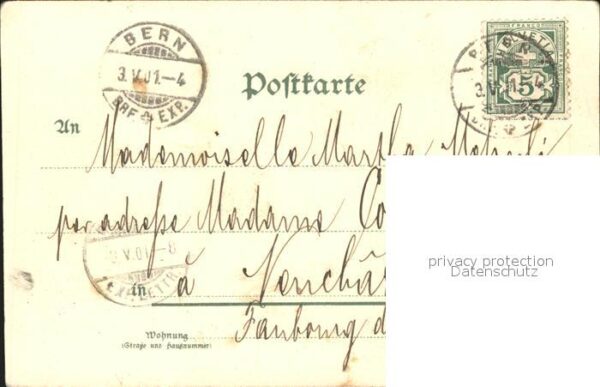 BERN
3.V.01.-4
BRF. EXP.
HELVETIA
FRANCO
5
3.V.01.-4
Postkarte
An
Mademoiselle Martha
per adresse Madame
3.V.01.-8
à Neuchâ
in
Faubourg d
Wohnung
(Straße und Hausnummer)
privacy protection
Datenschutz